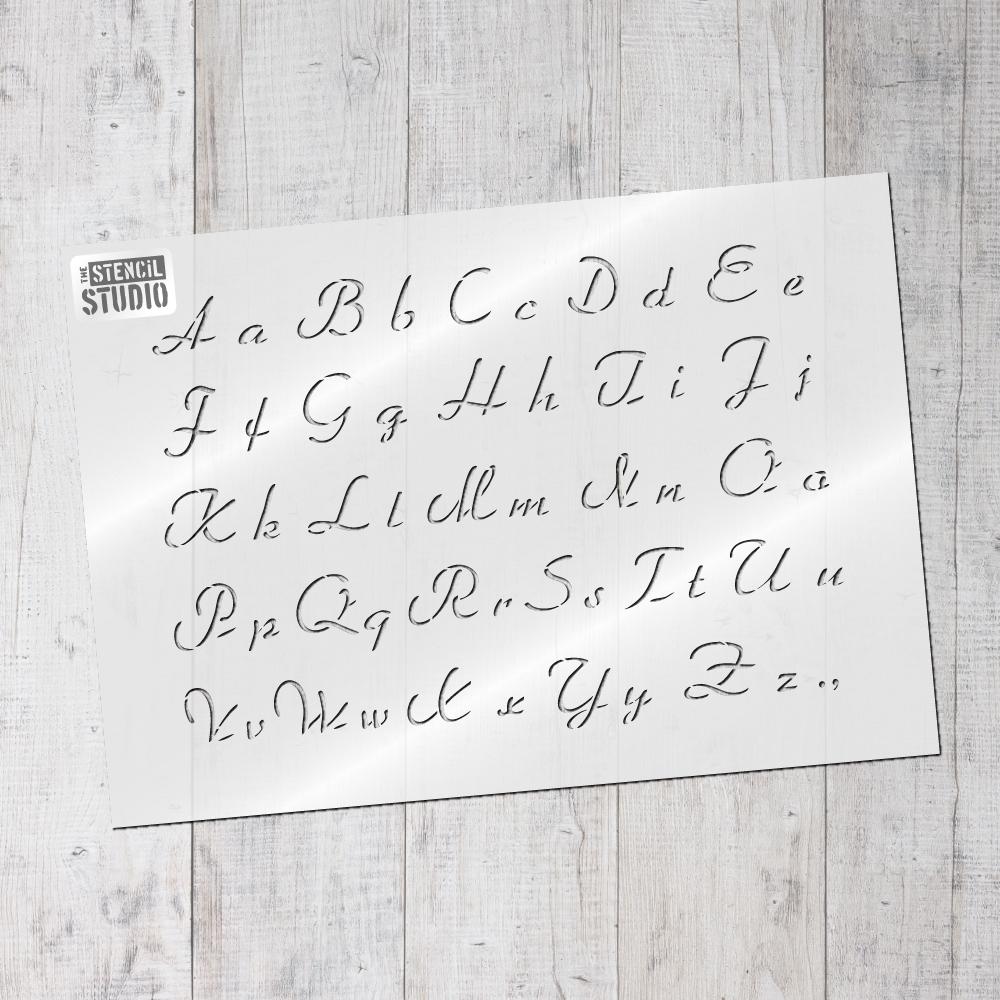 THE STENCIL STUDIO
A a B b C c D d E e
F f G g H h I i J j
K k L l M m N n O o
P p Q q R r S s T t U u
V v W w X x Y y Z z . ,